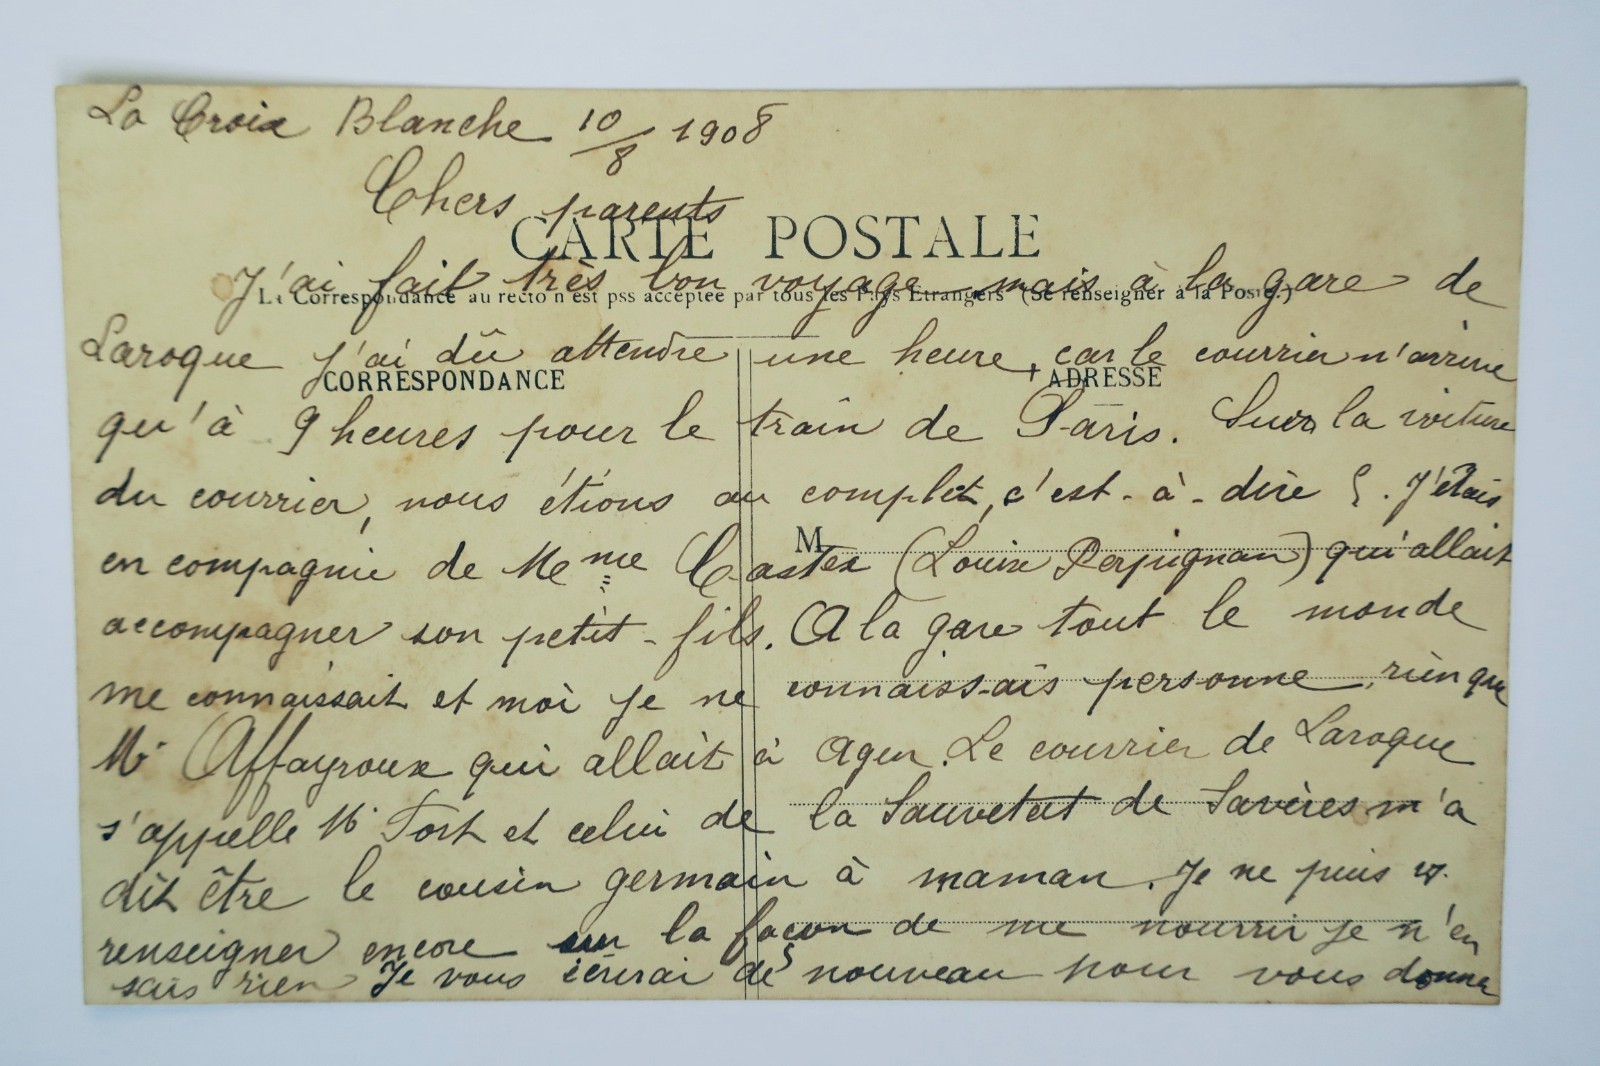 La Croix Blanche 10/8 1908
Chers parents
CARTE POSTALE
J'ai fait très bon voyage mais à la gare de
La Correspondance au recto n'est pas acceptée par tous les Pays Etrangers (Se renseigner à la Poste.)
Laroque j'ai dû attendre une heure, car le courrier n'arrive
CORRESPONDANCE ADRESSE
qu'à 9 heures pour le train de Paris. Sur la voiture
du courrier, nous étions au complet, c'est-à-dire 5. J'étais
M
en compagnie de Mme Castex (Louise Perpignan) qui allait
accompagner son petit-fils. A la gare tout le monde
me connaissait et moi je ne connaissais personne, rien que
Mr Affayroux qui allait à Agen. Le courrier de Laroque
s'appelle Mr Fort et celui de la Sauvetat de Savères m'a
dit être le cousin germain à maman. Je ne puis v.
renseigner encore sur la façon de me nourrir je n'en
sais rien Je vous écrirai de nouveau pour vous donner